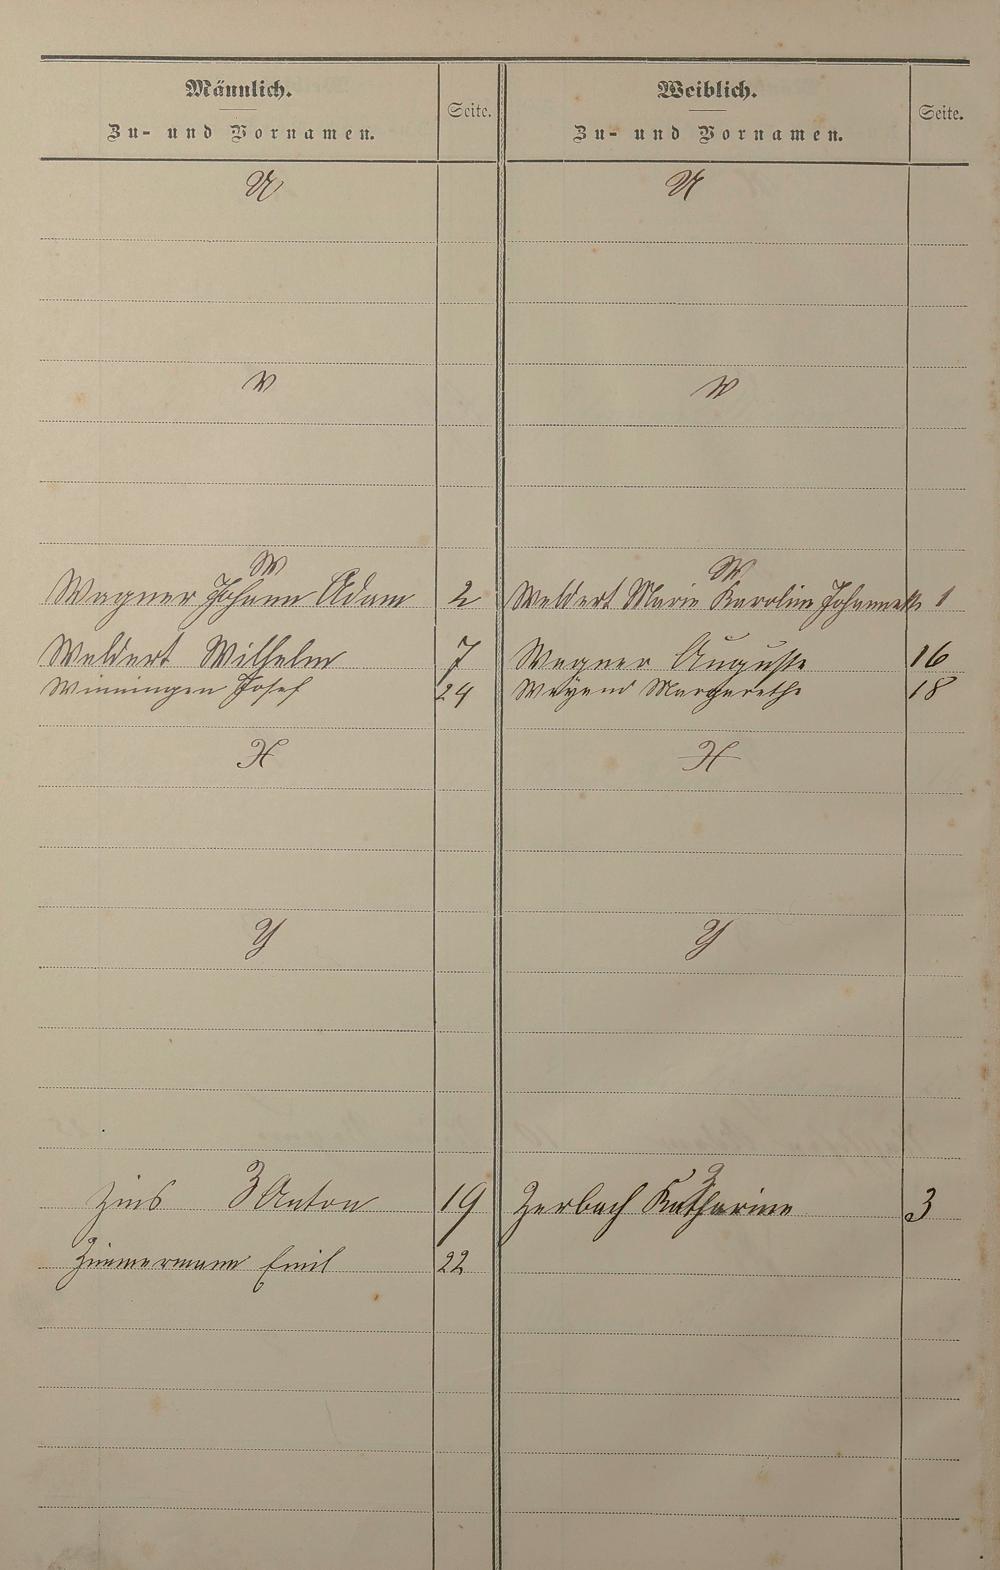 Männlich.
Zu- und Vornamen.
Seite.
Weiblich.
Zu- und Vornamen.
Seite.
U
U
V
V
W
W
Wagner Johann Adam 2
Weldert Marie Karoline Johannette 1
Weldert Wilhelm 7
Wagner Auguste 16
Winningen Josef 24
Weyand Margarethe 18
X
X
Y
Y
Z
Z
Zins Anton 19
Zerbach Katharine 3
Zimmermann Emil 22